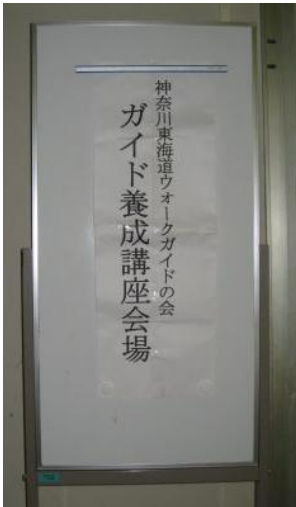 神奈川東海道ウォークガイドの会
ガイド養成講座会場